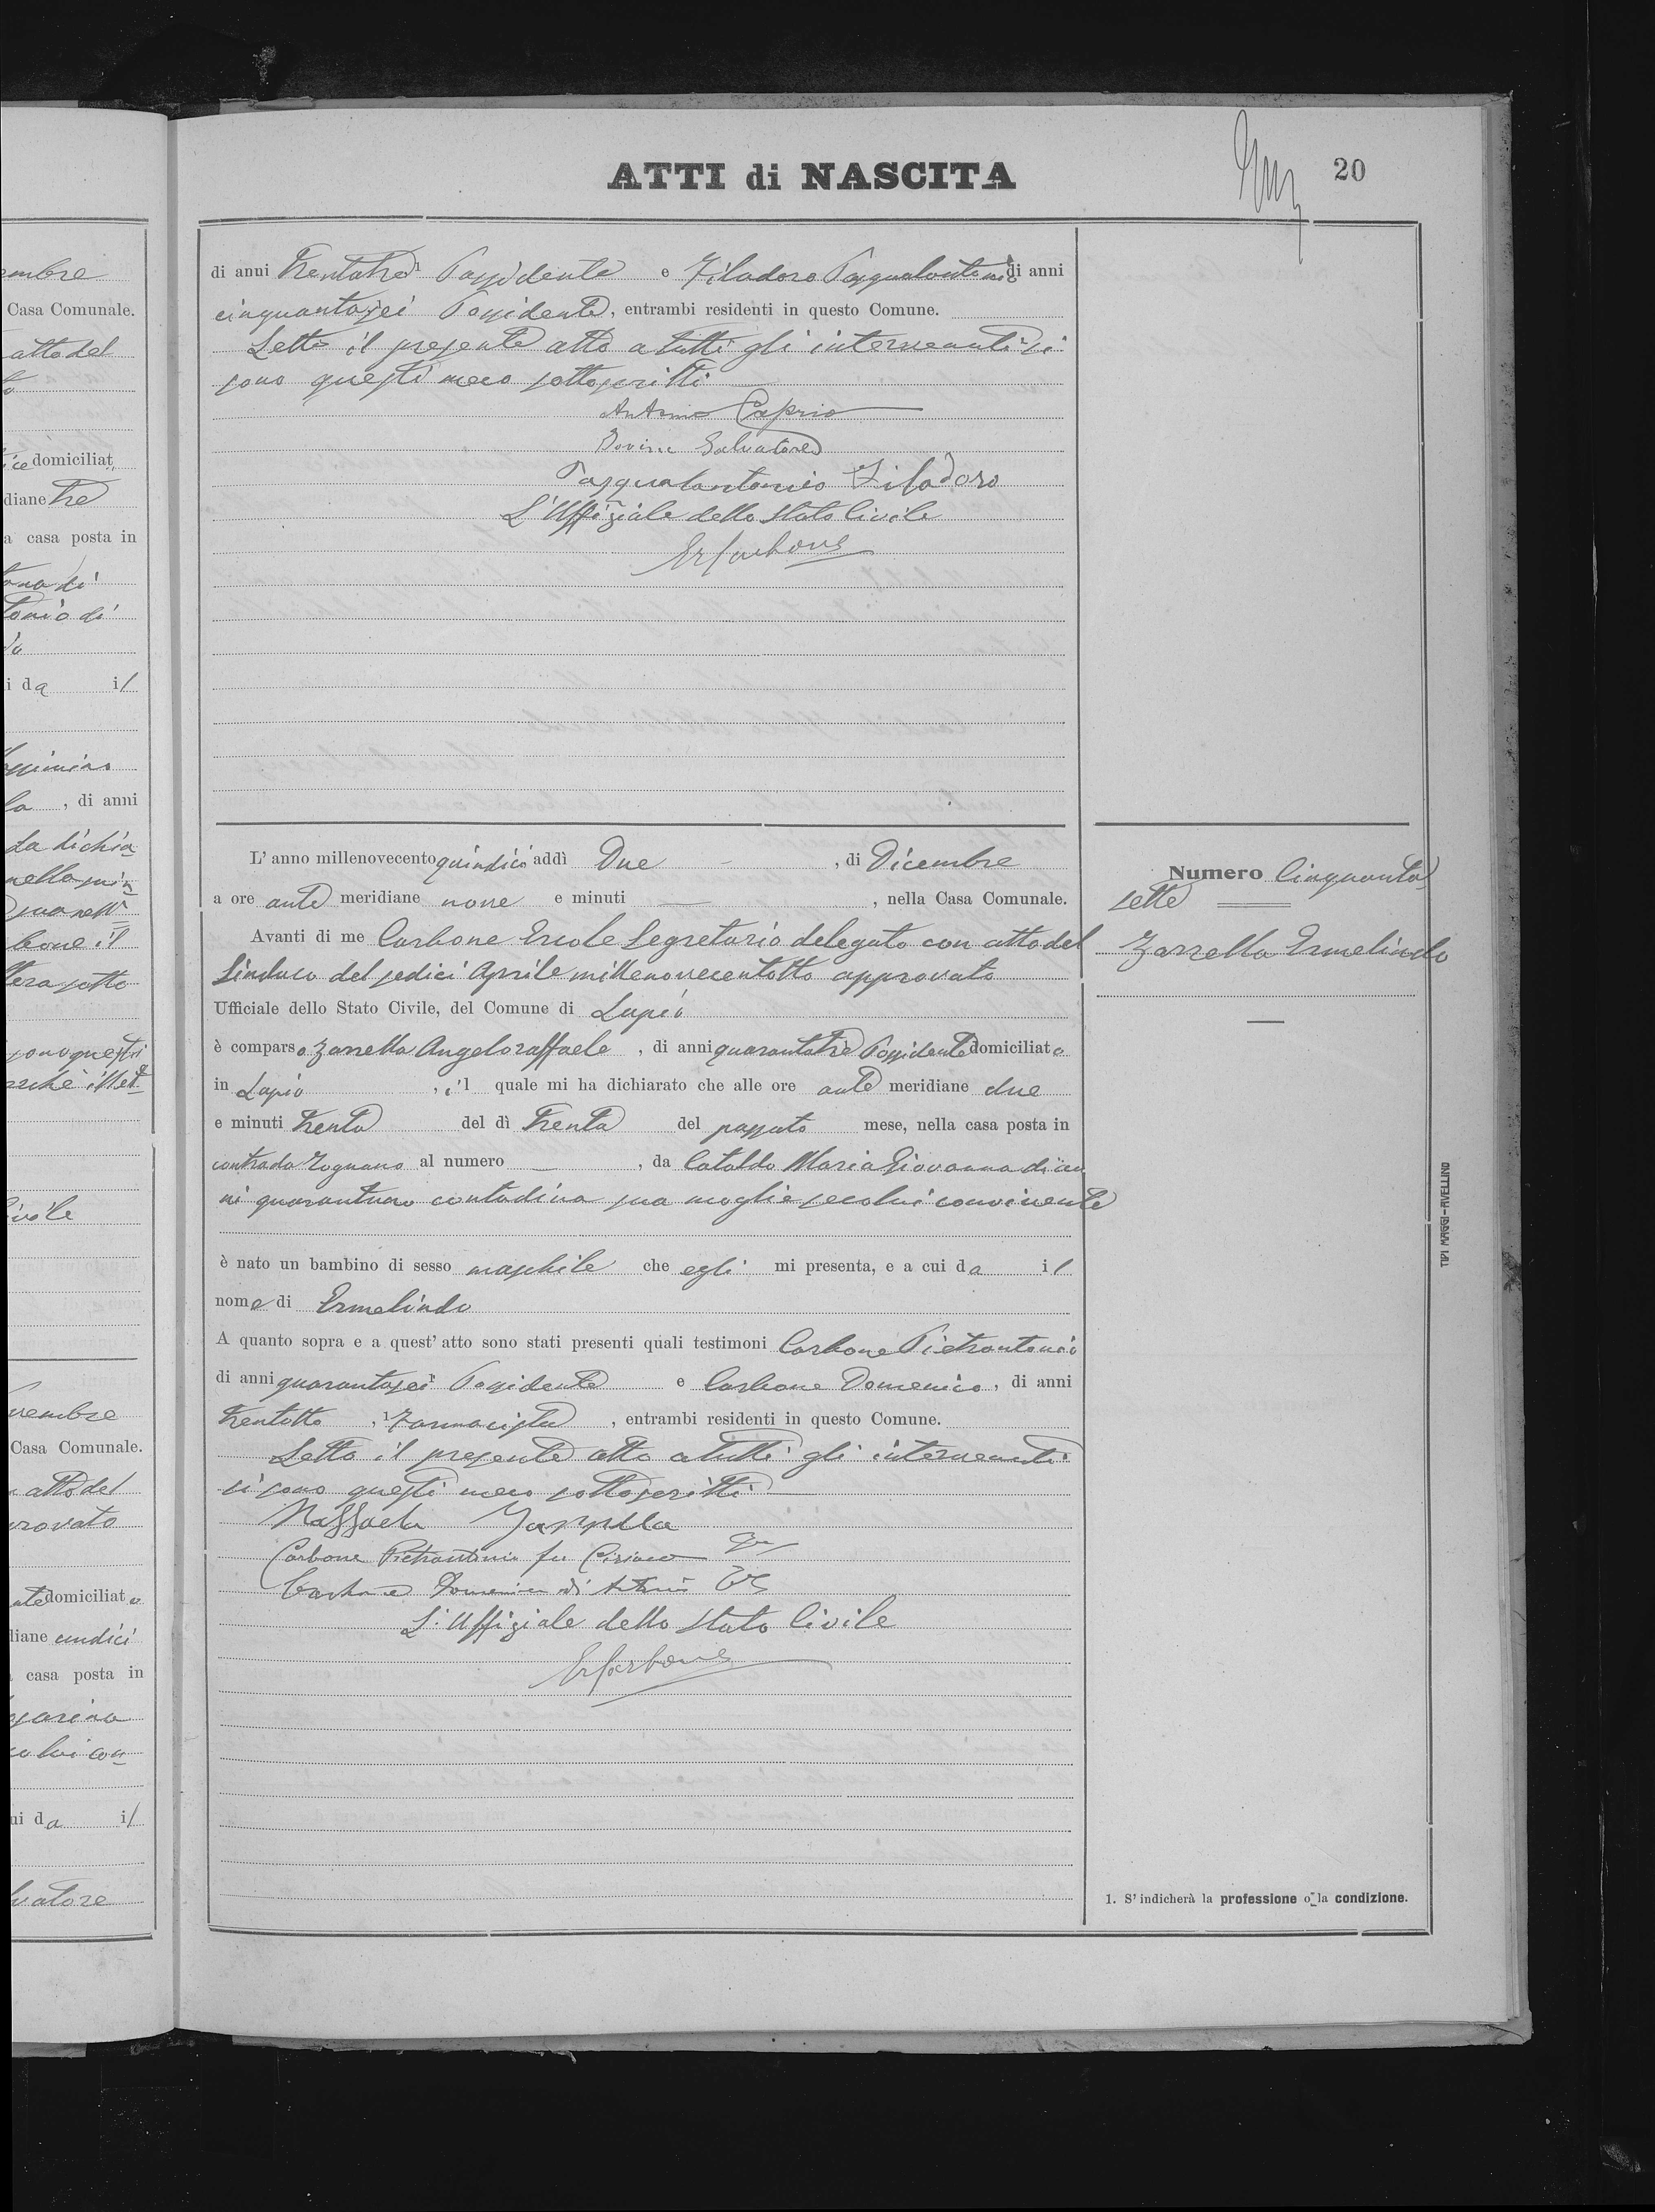 embre
Casa Comunale.
atto del
to
ice domiciliat
diane tre
a casa posta in
tonio di
i da il
la, di anni
La dichia
bone il
sono questi
ivile
vembre
Casa Comunale.
atto del
provato
ente domiciliato
diane undici
casa posta in
ui da il
lvatore
ATTI di NASCITA
20
di anni trentatre Possidente e Filadoro Pasqualantonio di anni
cinquantasei Possidente, entrambi residenti in questo Comune.
Letto il presente atto a tutti gli intervenuti si
sono questi meco sottoscritti
Antonio Caprio
Salvatore
Pasqualantonio Filadoro
L'Uffiziale dello Stato Civile
ErCarbone
L'anno millenovecento quindici addì Due, di Dicembre
a ore ante meridiane nove e minuti —, nella Casa Comunale.
Avanti di me Carbone Ercole Segretario delegato con atto del
Sindaco del sedici Aprile millenovecentotto approvato
Ufficiale dello Stato Civile, del Comune di Lapio
è comparso Zarrella Angeloraffaele, di anni quarantatre Possidente domiciliato
in Lapio, il quale mi ha dichiarato che alle ore ante meridiane due
e minuti trenta del dì trenta del passato mese, nella casa posta in
contrada Rognano al numero —, da Cataldo Maria Giovanna di an
ni quarantuno contadina sua moglie secolui convivente
è nato un bambino di sesso maschile che egli mi presenta, e a cui da il
nome di Ermelindo
A quanto sopra e a quest'atto sono stati presenti quali testimoni Carbone Pietrantonio
di anni quarantasei Possidente e Carbone Domenico, di anni
trentotto, 1 Farmacista, entrambi residenti in questo Comune.
Letto il presente atto a tutti gli intervenuti
si sono questi meco sottoscritti
Raffaele Zarrella
Carbone Pietrantonio fu Ciriaco
Carbone Domenico di Antonio
L'Uffiziale dello Stato Civile
ErCarbone
Numero Cinquanta
sette
Zarrella Ermelindo
TIPI MAGGI-AVELLINO
1. S'indicherà la professione o la condizione.